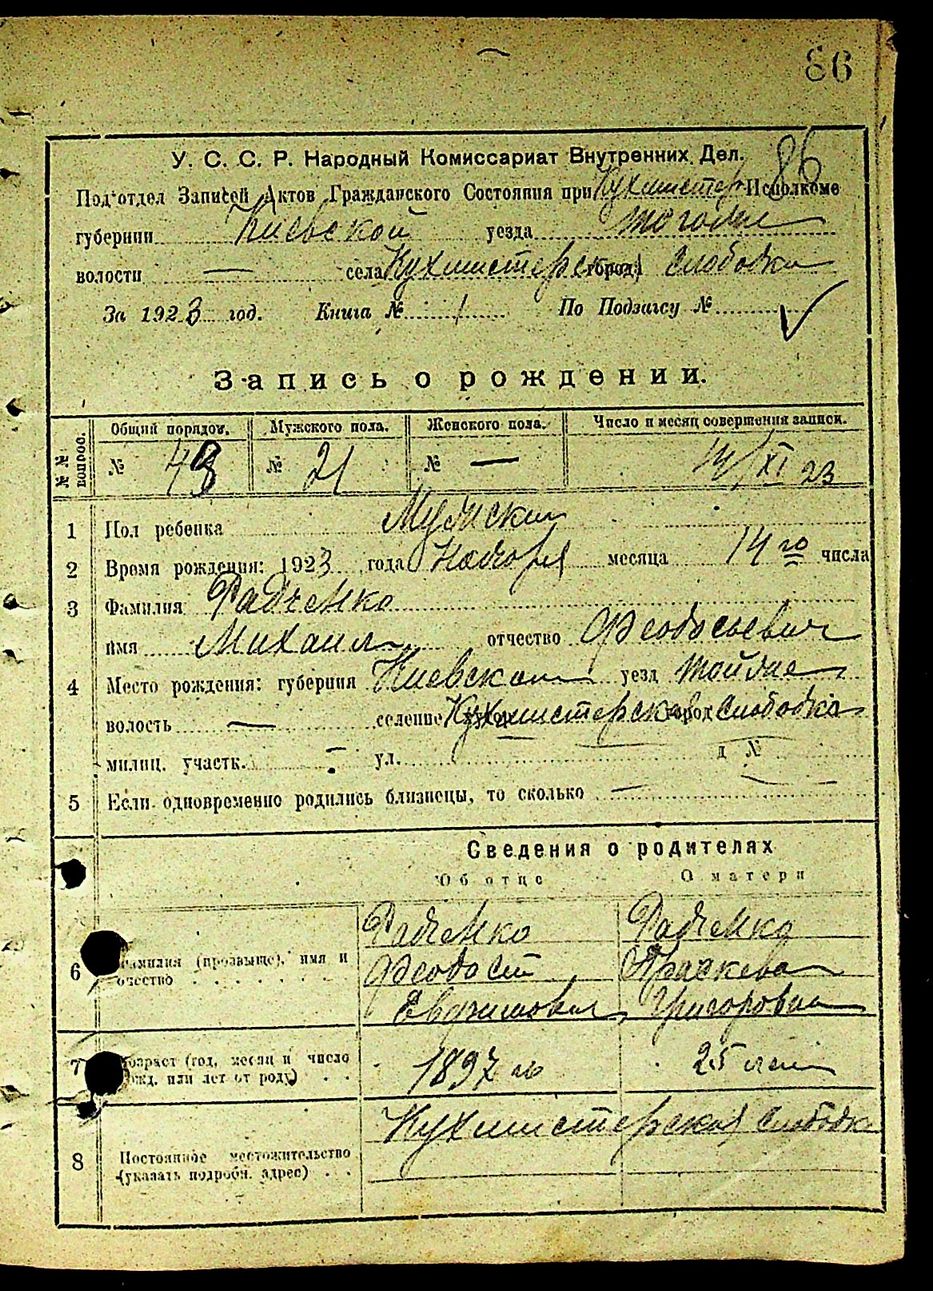 86
86
У. С. С. Р. Народный Комиссариат Внутренних Дел.
Под'отдел Записей Актов Гражданского Состояния при Кухмистер. Исполкоме
губернии Киевской уезда того же
волости — села Кухмистерская города Слободка
За 1923 год. Книга № 1 По Подзагсу №
Запись о рождении.
№№ вопрос. Общий порядов. Мужского пола. Женского пола. Число и месяц совершения записи.
№ 48 № 21 № — 14/XI 23
1 Пол ребенка Мужской
2 Время рождения: 1923 года Ноября месяца 14 го числа
3 Фамилия Радченко
имя Михаил отчество Феодосьевич
4 Место рождения: губерния Киевская уезд
волость — селение Кухмистерская город Слободка
милиц. участк. – ул. д №
5 Если одновременно родились близнецы, то сколько —
Сведения о родителях
Об отце О матери
Радченко Радченко
6 Фамилия (прозвище), имя и отчество Феодосий Праскева
Евдокимович Григоровна
7 Возраст (год, месяц и число рожд. или лет от роду) 1897 го 25 лет
Кухмистерская Слободка
8 Постоянное местожительство
(указать подробн. адрес)